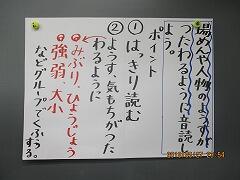 場めんや人物のようすが
つたわるように音読
よう。
ポイント
①はっきり読む
②ようす、気もちがつた
わるように
みぶり、ひょうじょう
強弱、大小
などグループでくふうする。